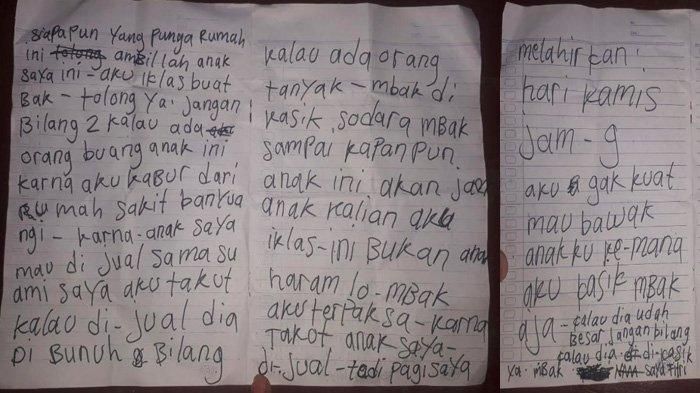 siapapun yang punga Rumah
ini tolong ambillah anak
saya ini - aku iklas buat
Bak - tolong ya. jangan
Bilang 2 kalau ada
orang buang anak ini
karna aku kabur dari
Rumah sakit banyua
ngi - karna - anak saya
mau di jual sama su
ami saya aku takut
kalau di - jual dia
Di Bunuh Bilang
kalau ada orang
tanyak - mbak di
kasik sodara mBak
sampai kapan pun
anak ini akan jadi
anak kalian aku
iklas - ini Bukan anak
haram lo - mBak
aku terpaksa - karna
Takot anak saya -
di - jual - tadi pagi saya
melahirkan
hari kamis
jam - 9
aku gak kuat
mau bawak
anakku ke - mana
aku kasik mBak
aja - kalau dia udah
Besar jangan bilang
kalau dia di - kasik
ya mBak saya Fitri